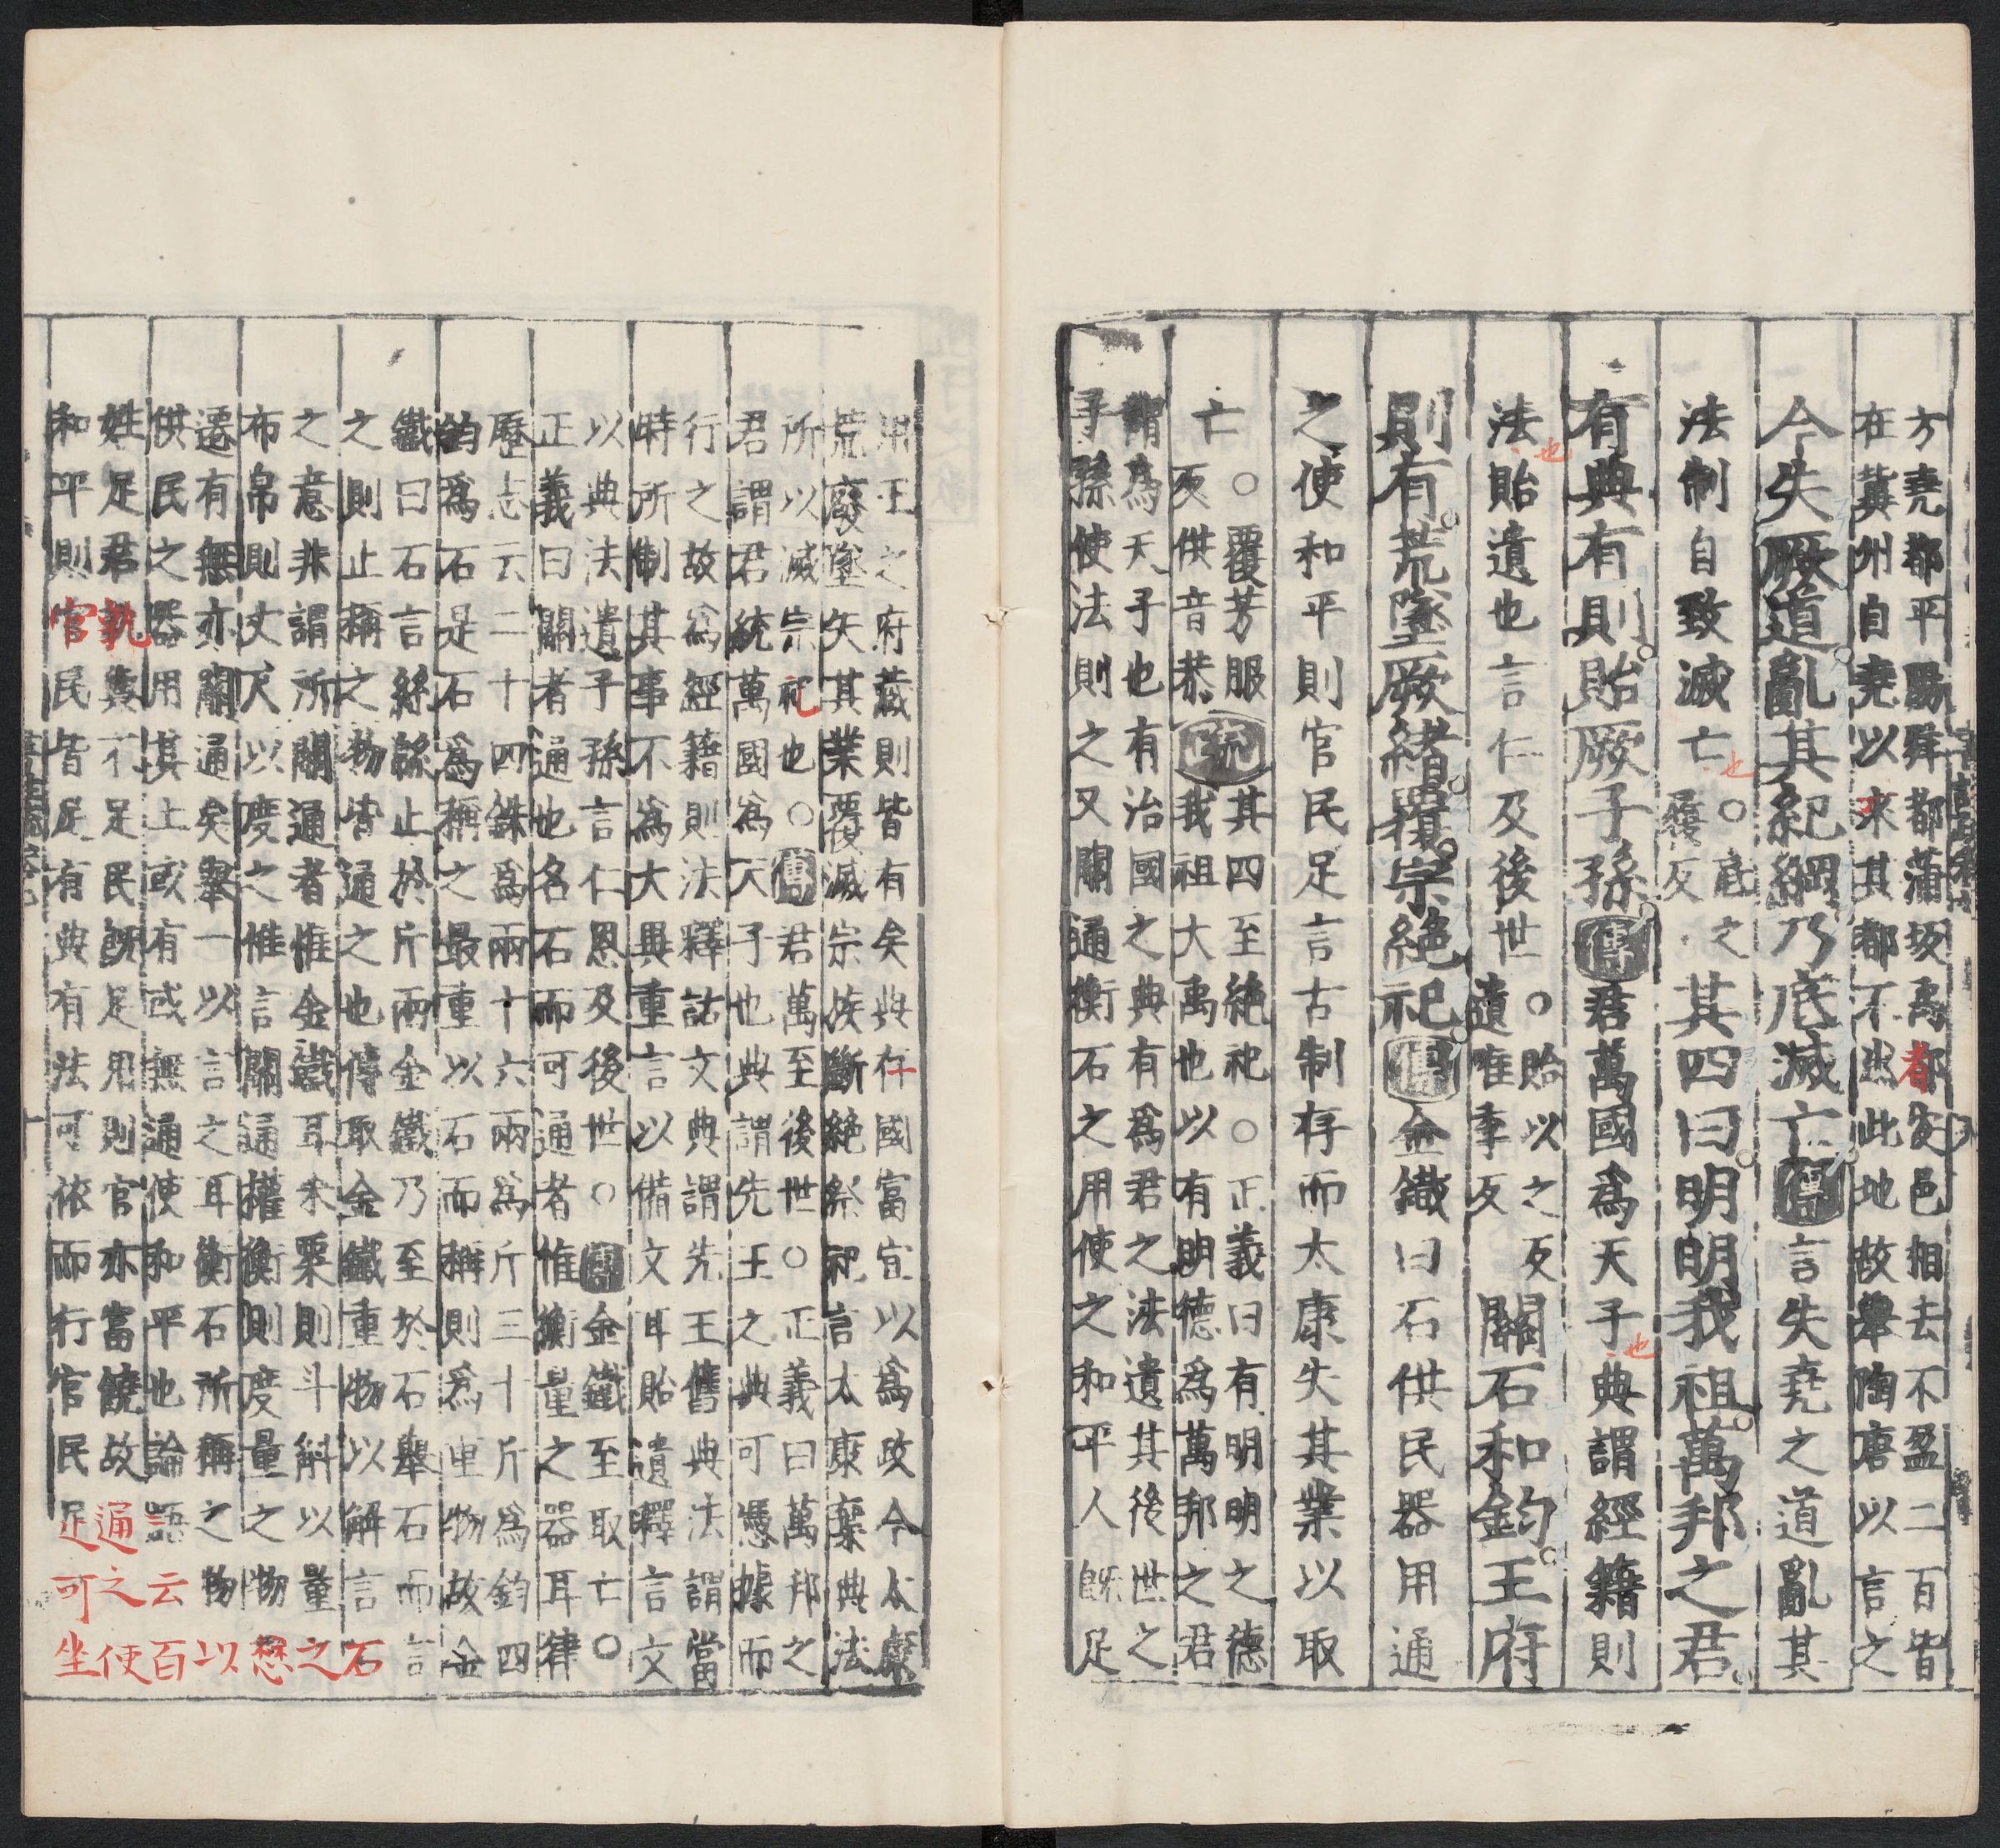 方堯都平陽舜都蒲坂禹都安邑相去不盈二百皆
在冀州自堯以來其都不出此地故舉陶唐以言之
今失厥道亂其紀綱乃底滅亡傳言失堯之道亂其
法制自致滅亡也○底之履反其四曰明明我祖萬邦之君
有典有則貽厥子孫傳君萬國爲天子也典謂經籍則
法也貽遺也言仁及後世○貽以之反遺唯季反關石和鈞王府
則有荒墜厥緒覆宗絕祀傳金鐵曰石供民器用通
之使和平則官民足言古制存而太康失其業以取
亡○覆芳服反供音恭疏其四至絕祀○正義曰有明明之德
我祖大禹也以有明德爲萬邦之君
謂爲天子也有治國之典有爲君之法遺其後世之
子孫使法則之又關通衡石之用使之和平人既足
用王之府藏則皆有矣典存國富宜以爲政今太康
荒廢墜失其業覆滅宗族斷絕祭祀言太康棄典法
所以滅宗祀也○傳君萬至後世○正義曰萬邦之
君謂君統萬國爲天子也典謂先王之典可憑據而
行之故爲經籍則法釋詁文典謂先王舊典法謂當
時所制其事不爲大異重言以備文耳貽遺釋言文
以典法遺子孫言仁恩及後世○傳金鐵至取亡○
正義曰關者通也名石而可通者惟衡量之器耳律
歷志云二十四銖爲兩十六兩爲斤三十斤爲鈞四
鈞爲石是石爲稱之最重以石而稱則爲重物故金
鐵曰石言絲綿止於斤兩金鐵乃至於石舉石而言
之則止稱之物皆通之也傳取金鐵重物以解言石
之意非謂所關通者惟金鐵耳米粟則斗斛以量之
布帛則丈尺以度之惟言關通權衡則度量之物懋
遷有無亦關通矣舉一以言之耳衡石所稱之物以
供民之器用其上或有或無通使和平也論語云百
姓足君孰與不足民既足用則官亦富饒故通之使
和平則官民皆足有典有法可依而行官民足可坐